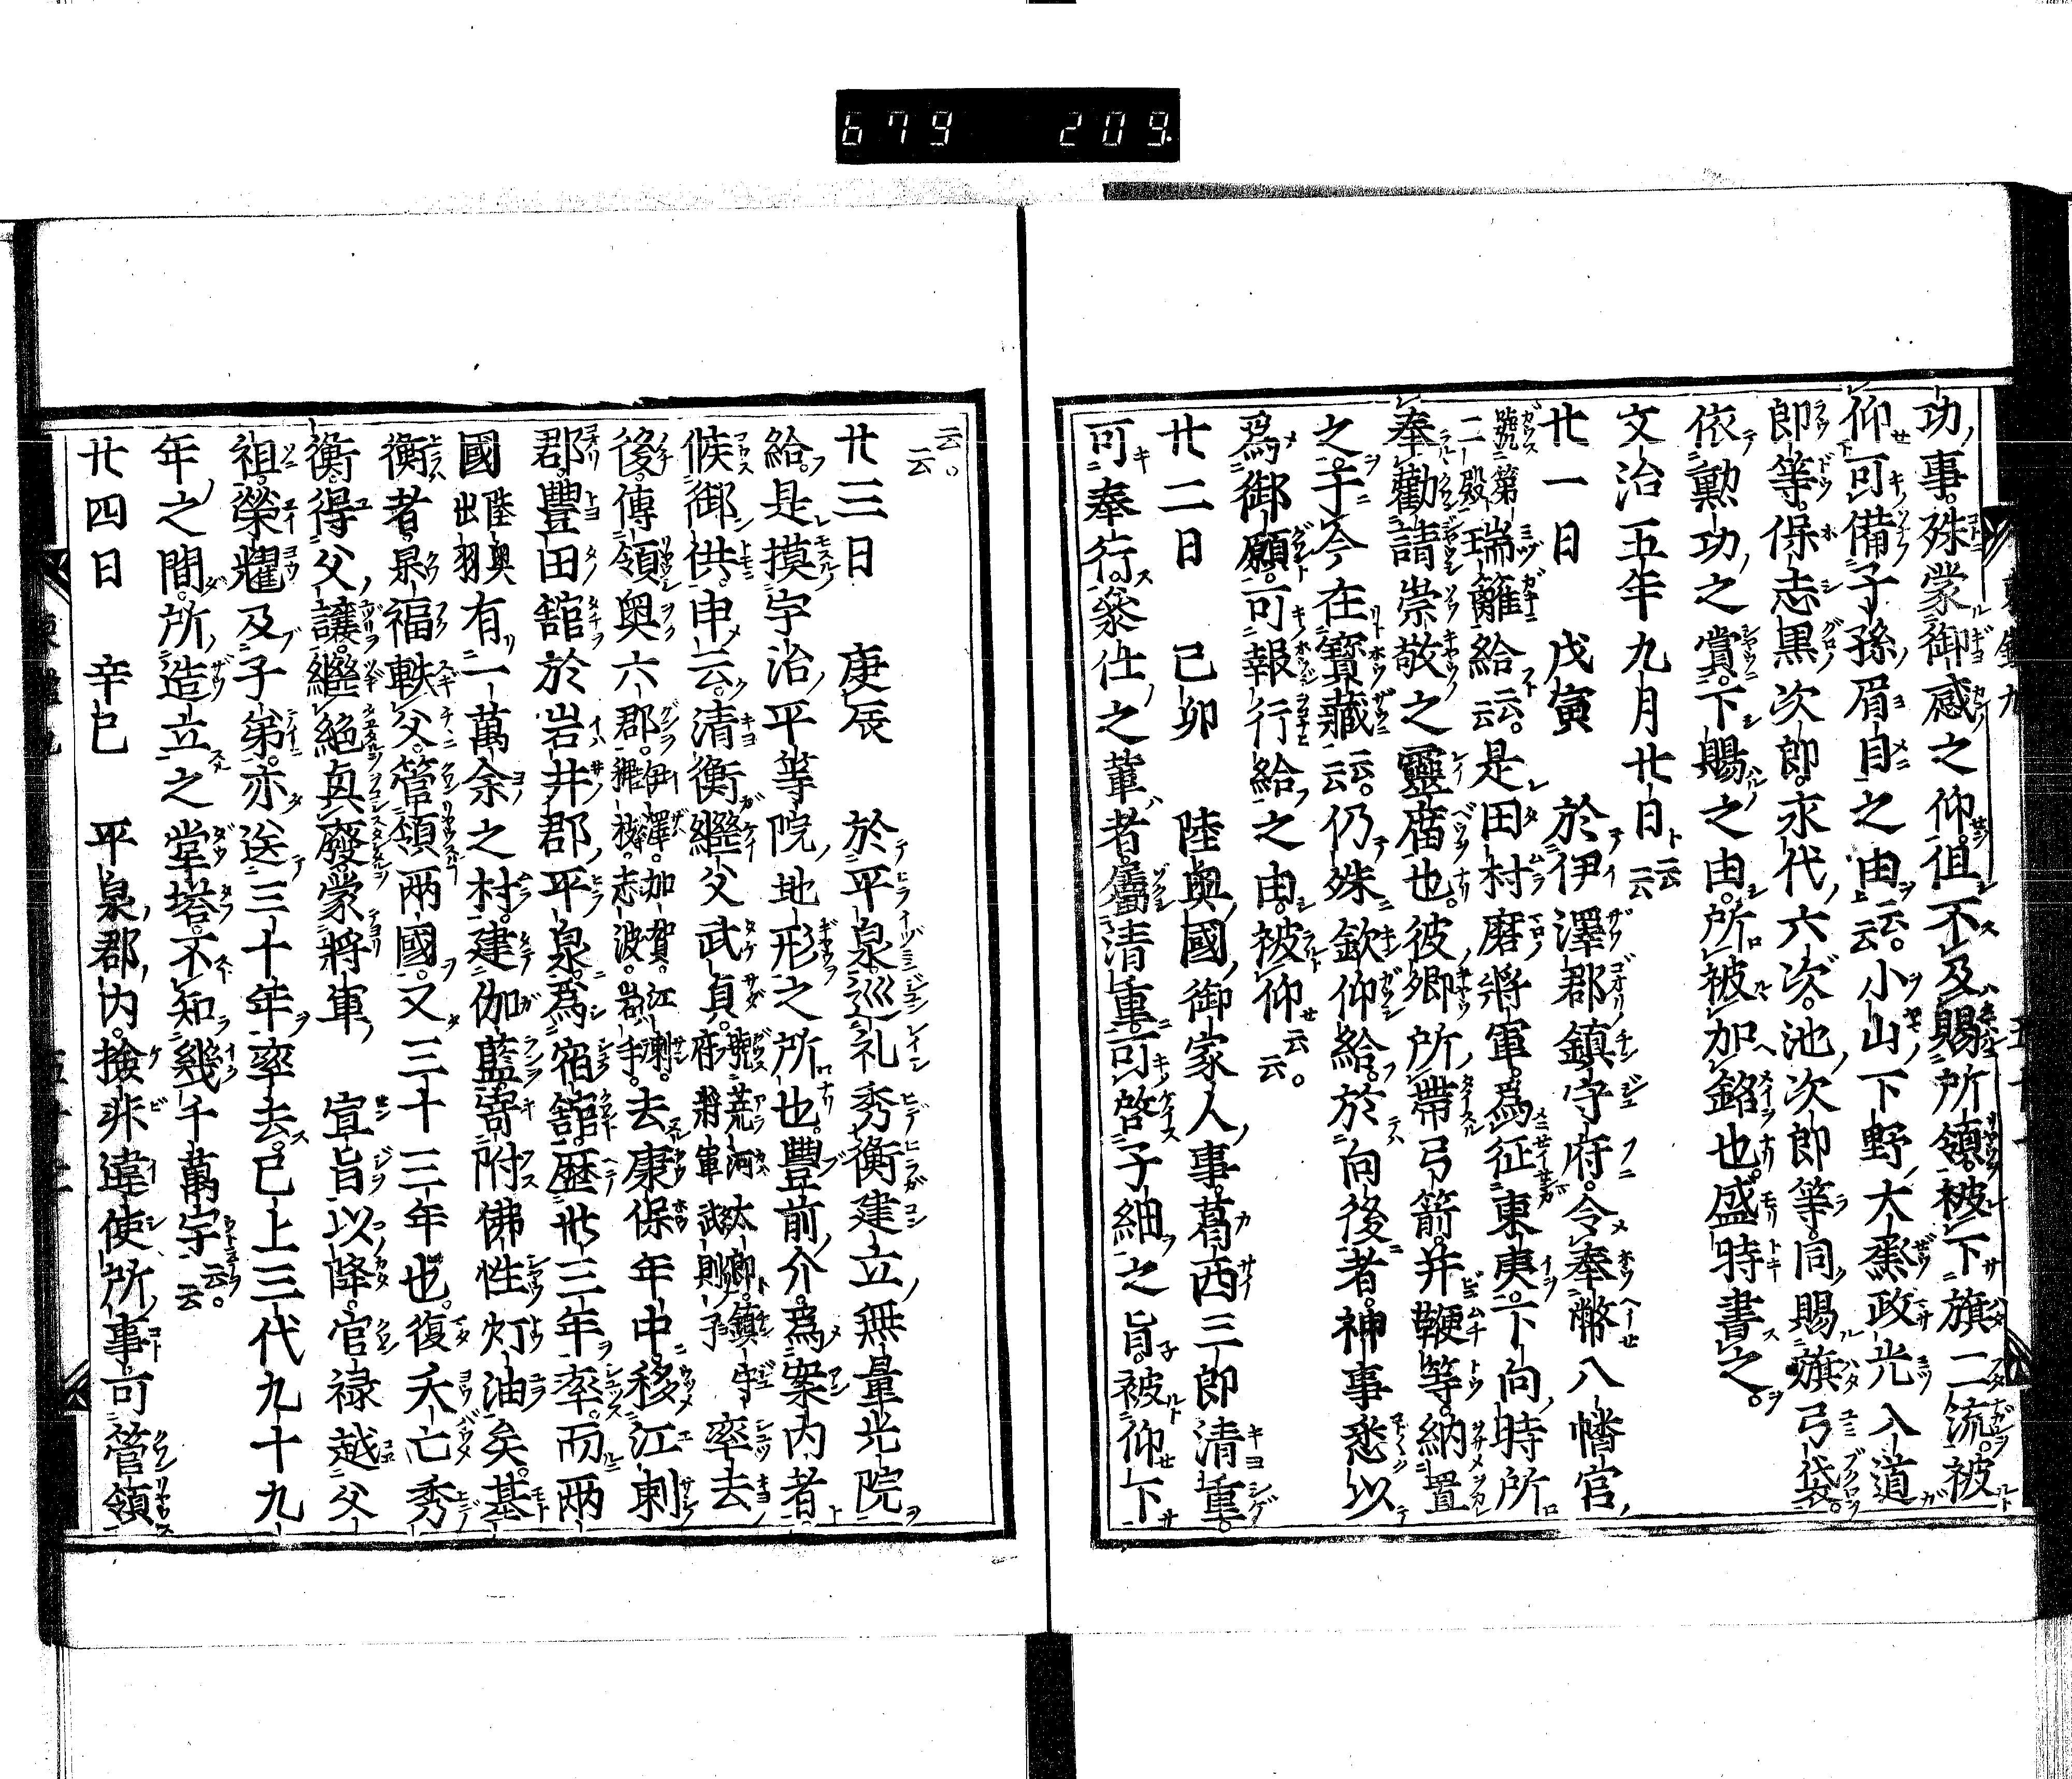 679 209.
功事殊蒙御感之仰但不及賜所領被下旗二流被
仰可備子孫眉目之由云云小山下野大掾政光入道
郎等保志黒次郎永代六次池次郎等同賜旗弓袋
依勲功之賞下賜之由所被加銘也盛時書之
文治五年九月廿日云云
廿一日 戊寅 於伊澤郡鎮守府令奉幣八幡宮
號第二殿瑞籬給云云是田村麿將軍爲征東夷下向時所
奉勸請崇敬之靈廟也彼卿所帶弓箭并鞭等納置
之于今在寳藏云云仍殊欽仰給於向後者神事悉以
爲御願可報行給之由被仰云云
廿二日 己卯 陸奥國御家人事葛西三郎清重
可奉行叅仕之輩者属清重可啓子細之旨被仰下
云云
廿三日 庚辰 於平泉巡礼秀衡建立無量光院
給是摸宇治平等院地形之所也豊前介爲案内者
候御供申云清衡繼父武貞號荒河太郎鎮守府將軍武則子卒去
後傳領奥六郡伊澤加賀江刺稗抜志波岩手去康保年中移江刺
郡豊田舘於岩井郡平泉爲宿舘歴丗三年卒而兩
國陸奥出羽有一萬余之村建伽藍寄附佛性灯油矣基
衡者果福軼父管領兩國又三十三年也復夭亡秀
衡得父讓繼絶興廢蒙將軍 宣旨以降官禄越父
祖榮耀及子弟亦送三十年卒去已上三代九十九
年之間所造立之堂塔不知幾千萬宇云云
廿四日 辛巳 平泉郡内撿非違使所事可管領